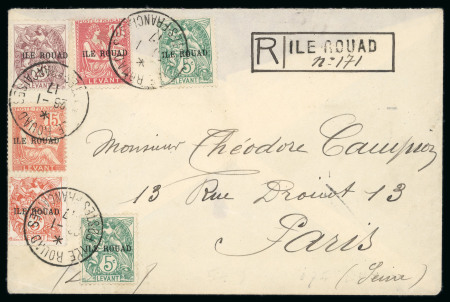 R ILE ROUAD
n° 171
ILE ROUAD
LEVANT
ILE ROUAD
LEVANT
ILE ROUAD
5c
LEVANT
15c
ILE ROUAD
LEVANT
ILE ROUAD
ILE ROUAD
5c
LEVANT
Monsieur Théodore Campion
13 Rue Drouot 13
Paris
(Seine)